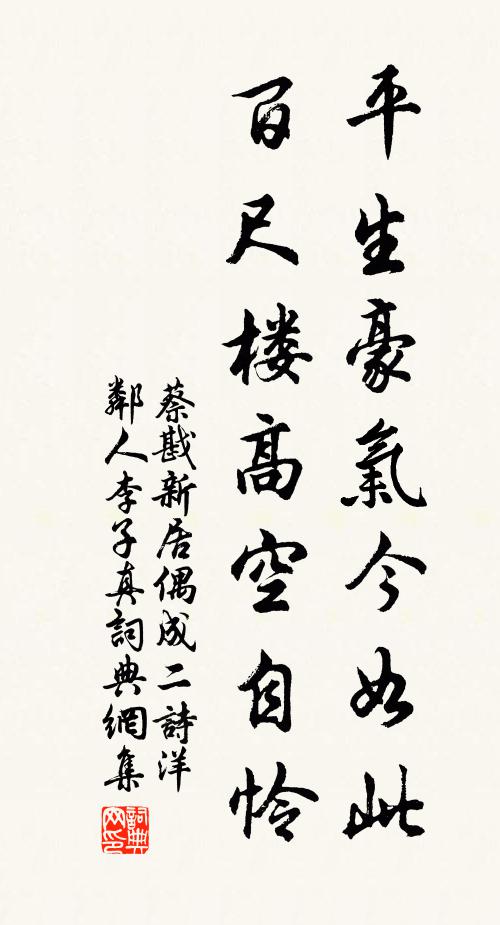 平生豪氣今如此
百尺楼高空自怜
蔡戡新居偶成二詩洋
鄰人李子真詞典網集
詞典網印